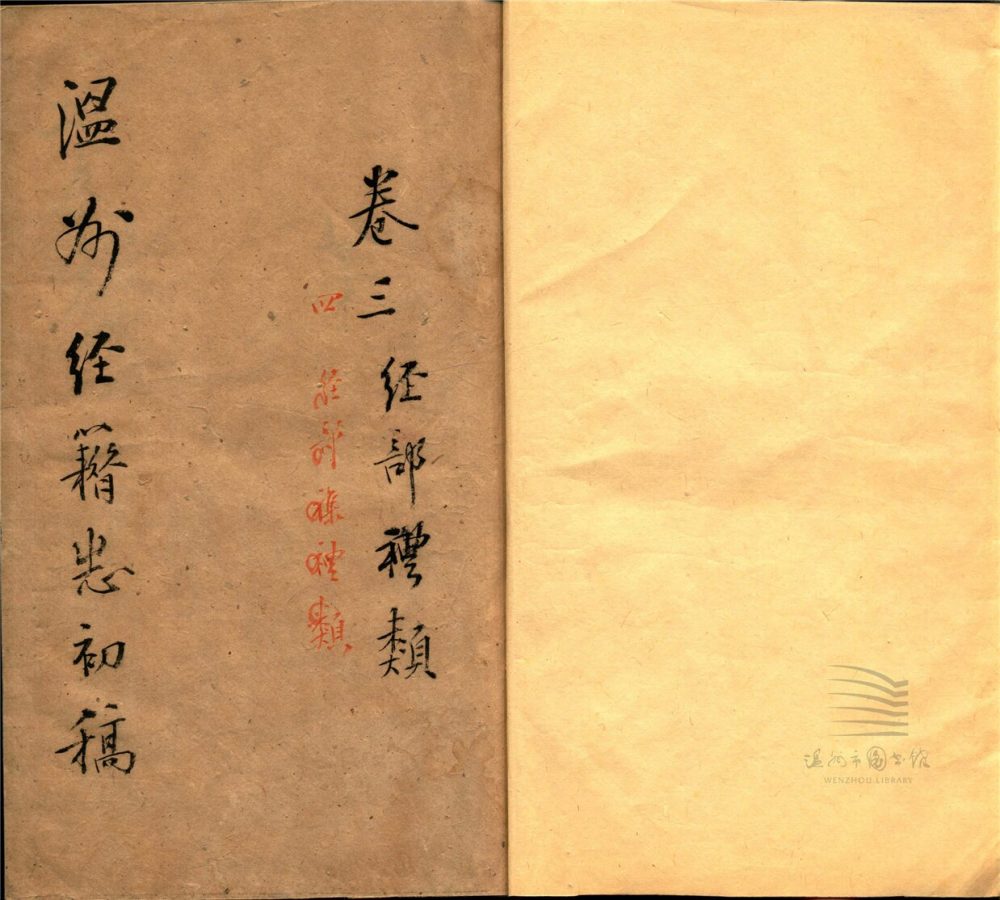 卷三经部禮類
四 经部禮類
温州经籍志初稿
温州市图书馆
WENZHOU LIBRARY